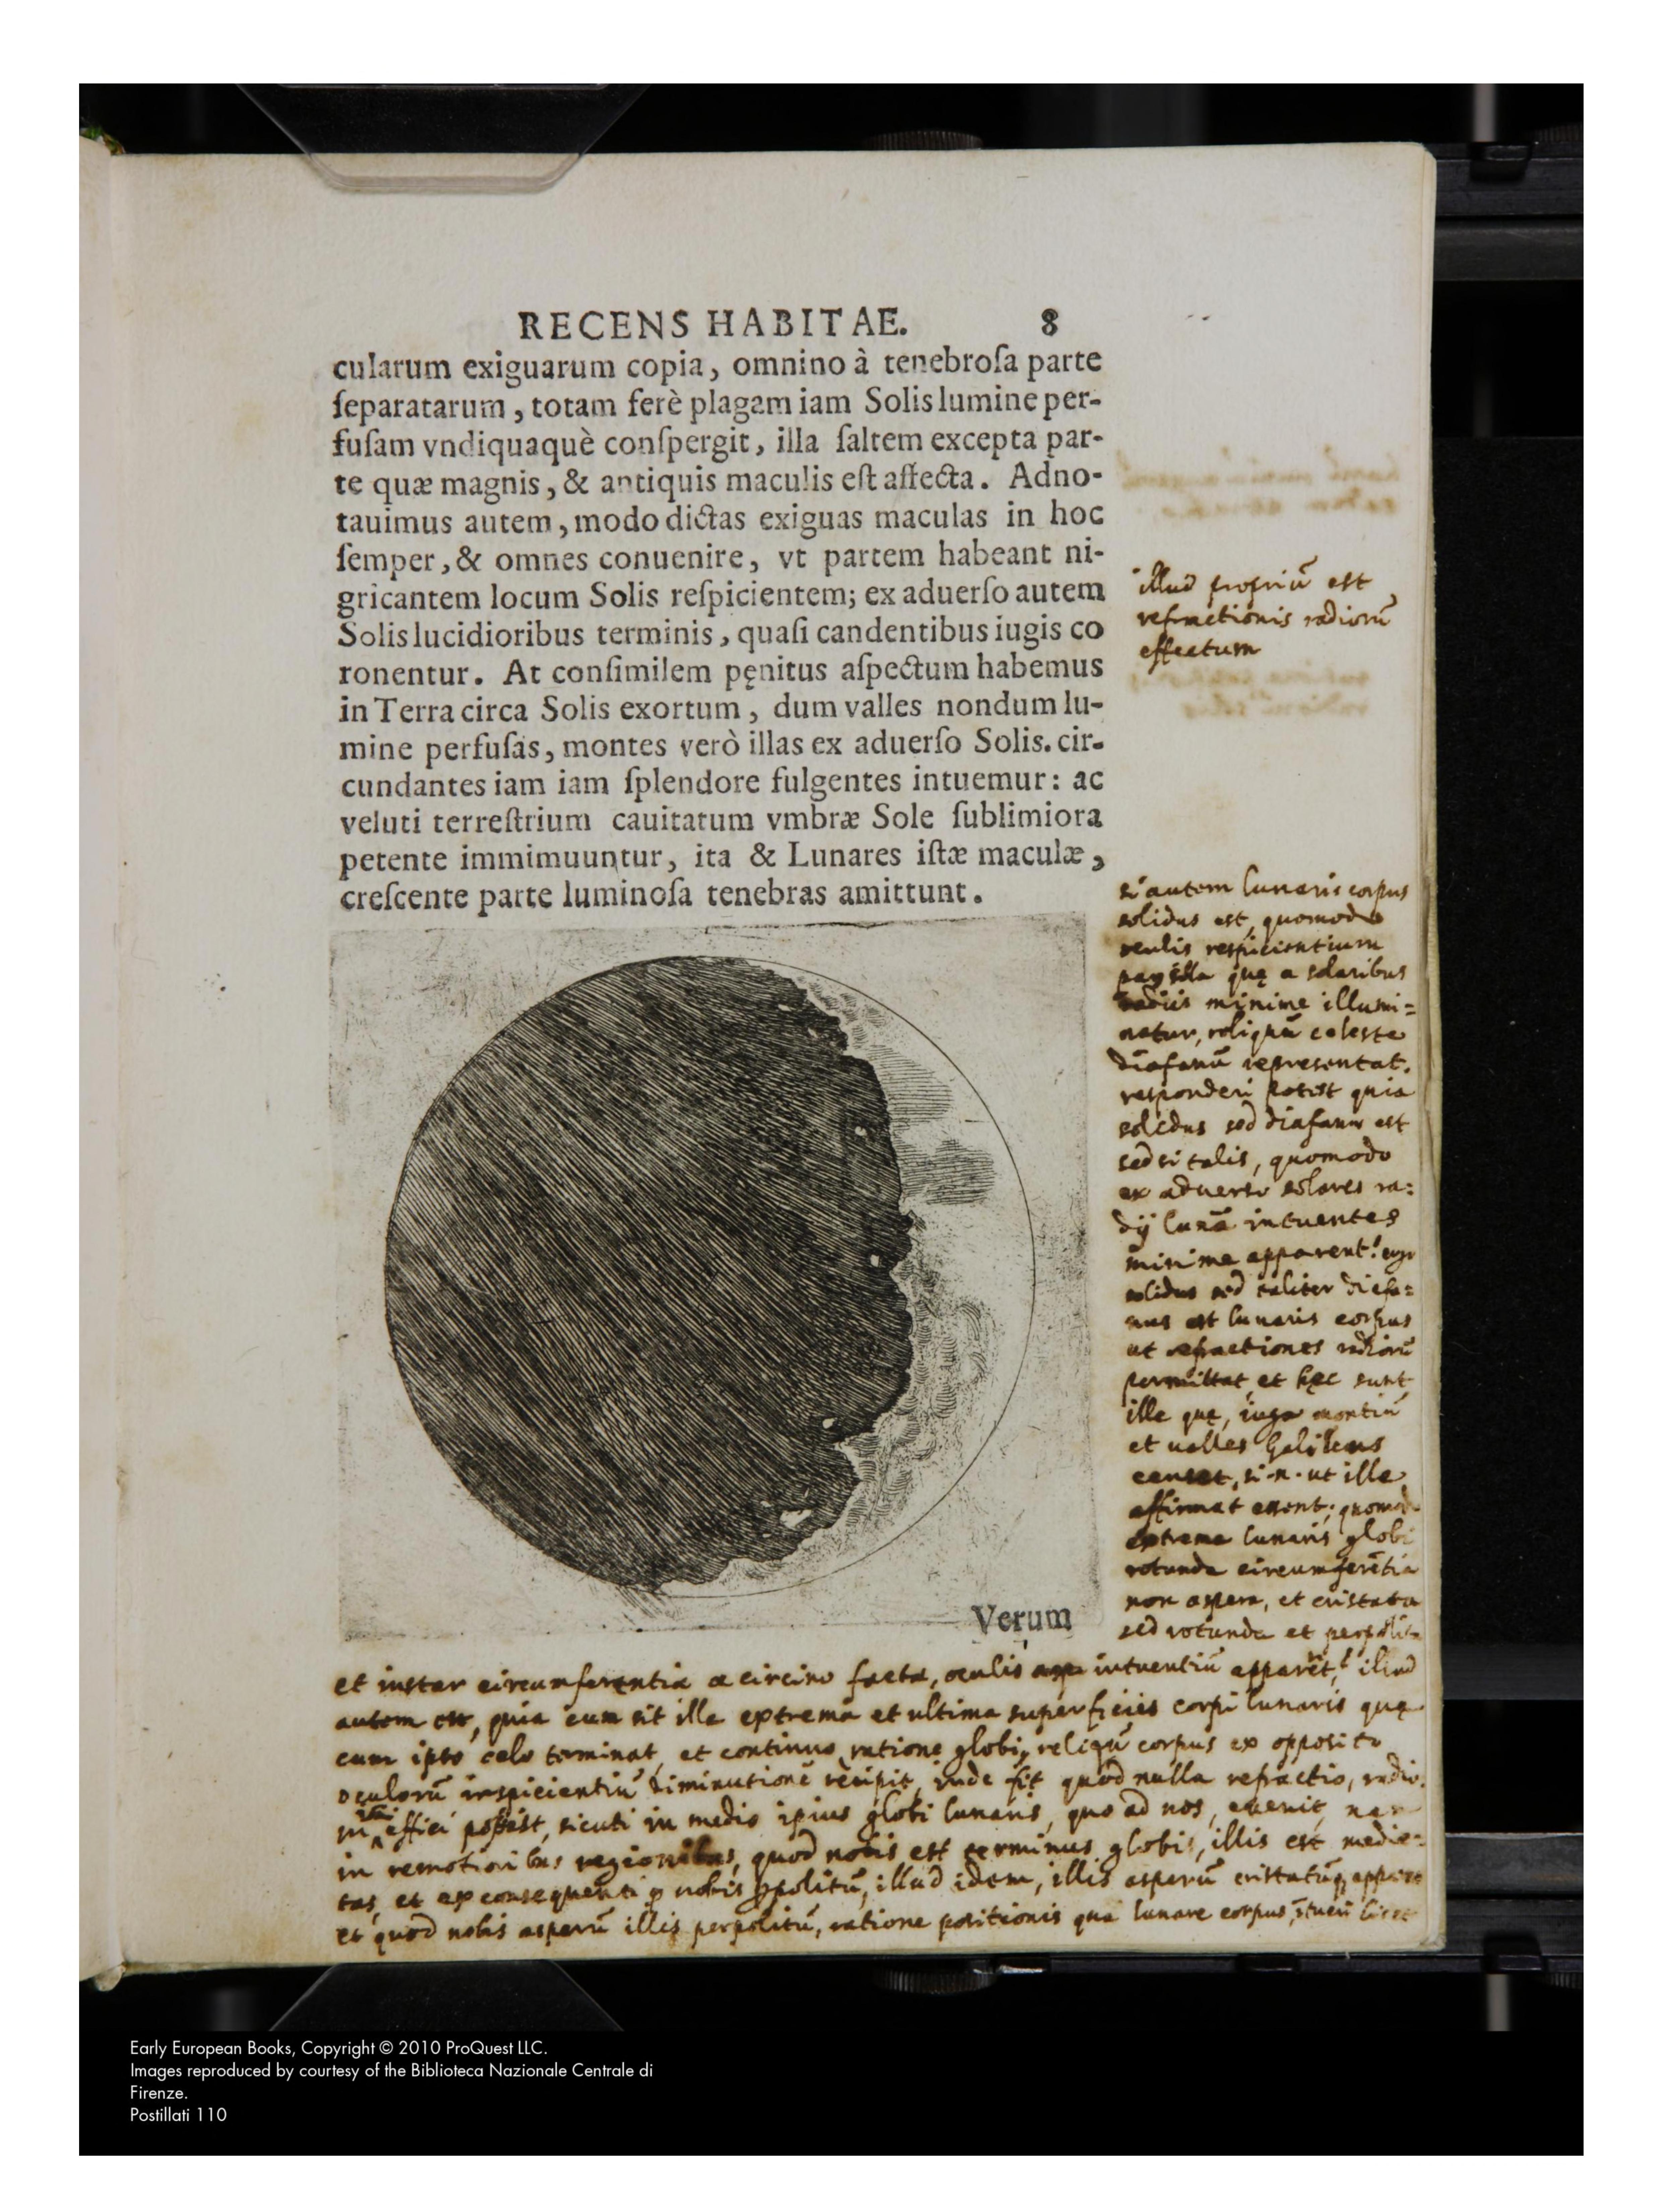 RECENS HABITAE. 8
cularum exiguarum copia, omnino à tenebroſa parte
ſeparatarum, totam ferè plagam iam Solis lumine per-
fuſam vndiquaquè conſpergit, illa ſaltem excepta par-
te quæ magnis, & antiquis maculis eſt affecta. Adno-
tauimus autem, modo dictas exiguas maculas in hoc
ſemper, & omnes conuenire, vt partem habeant ni-
gricantem locum Solis reſpicientem; ex aduerſo autem
Solis lucidioribus terminis, quaſi candentibus iugis co
ronentur. At conſimilem pęnitus aſpectum habemus
in Terra circa Solis exortum, dum valles nondum lu-
mine perfuſas, montes verò illas ex aduerſo Solis. cir-
cundantes iam iam ſplendore fulgentes intuemur: ac
veluti terreſtrium cauitatum vmbræ Sole ſublimiora
petente immimuuntur, ita & Lunares iſtæ maculæ,
creſcente parte luminoſa tenebras amittunt.
Verum
illud propriũ est
refractionis radiorũ
effectum
si autem lunaris corpus
solidus est, quomodo
oculis respicientium
illa quę a solaribus
radiis minime illumi=
natur, reliquũ celeste
diafanũ representat.
responderi potest quia
solidus sed diafanus est
sed si talis, quomodo
ex adverso solares ra=
dij lunã intuentes
minime apparent?
solidus sed taliter diafa=
nus est lunaris corpus
ut refractiones radiorũ
permittat, et hęc sunt
ille quę, iuga montiũ
et valles Galileus
censet, si .n. ut ille
affirmat essent; quomodo
extrema lunaris globi
rotunda circumferẽtia
non aspera, et cristata
sed rotunda et perpolita
et instar circumferentia a circino facta, oculis intuentiũ apparet? illud
autem est, quia cum sit illa extrema et ultima superficies corpi lunaris quę
cum ipso celo terminat, et continuo ratione globi, reliqũ corpus ex opposito
oculorũ inspicientiũ diminutionẽ recipit, inde fit quod nulla refractio, radio.
effici possit, sicuti in medio ipius globi lunaris, quo ad nos, evenit, nam
in remotioribus regionibus, quod nobis est terminus globi, illis est medie=
tas, et ex consequenti nobis politũ, illud idem, illis asperũ cristatũq
et quod nobis asperũ illis perpolitũ, ratione positionis qua lunare corpus,
Early European Books, Copyright © 2010 ProQuest LLC.
Images reproduced by courtesy of the Biblioteca Nazionale Centrale di
Firenze.
Postillati 110